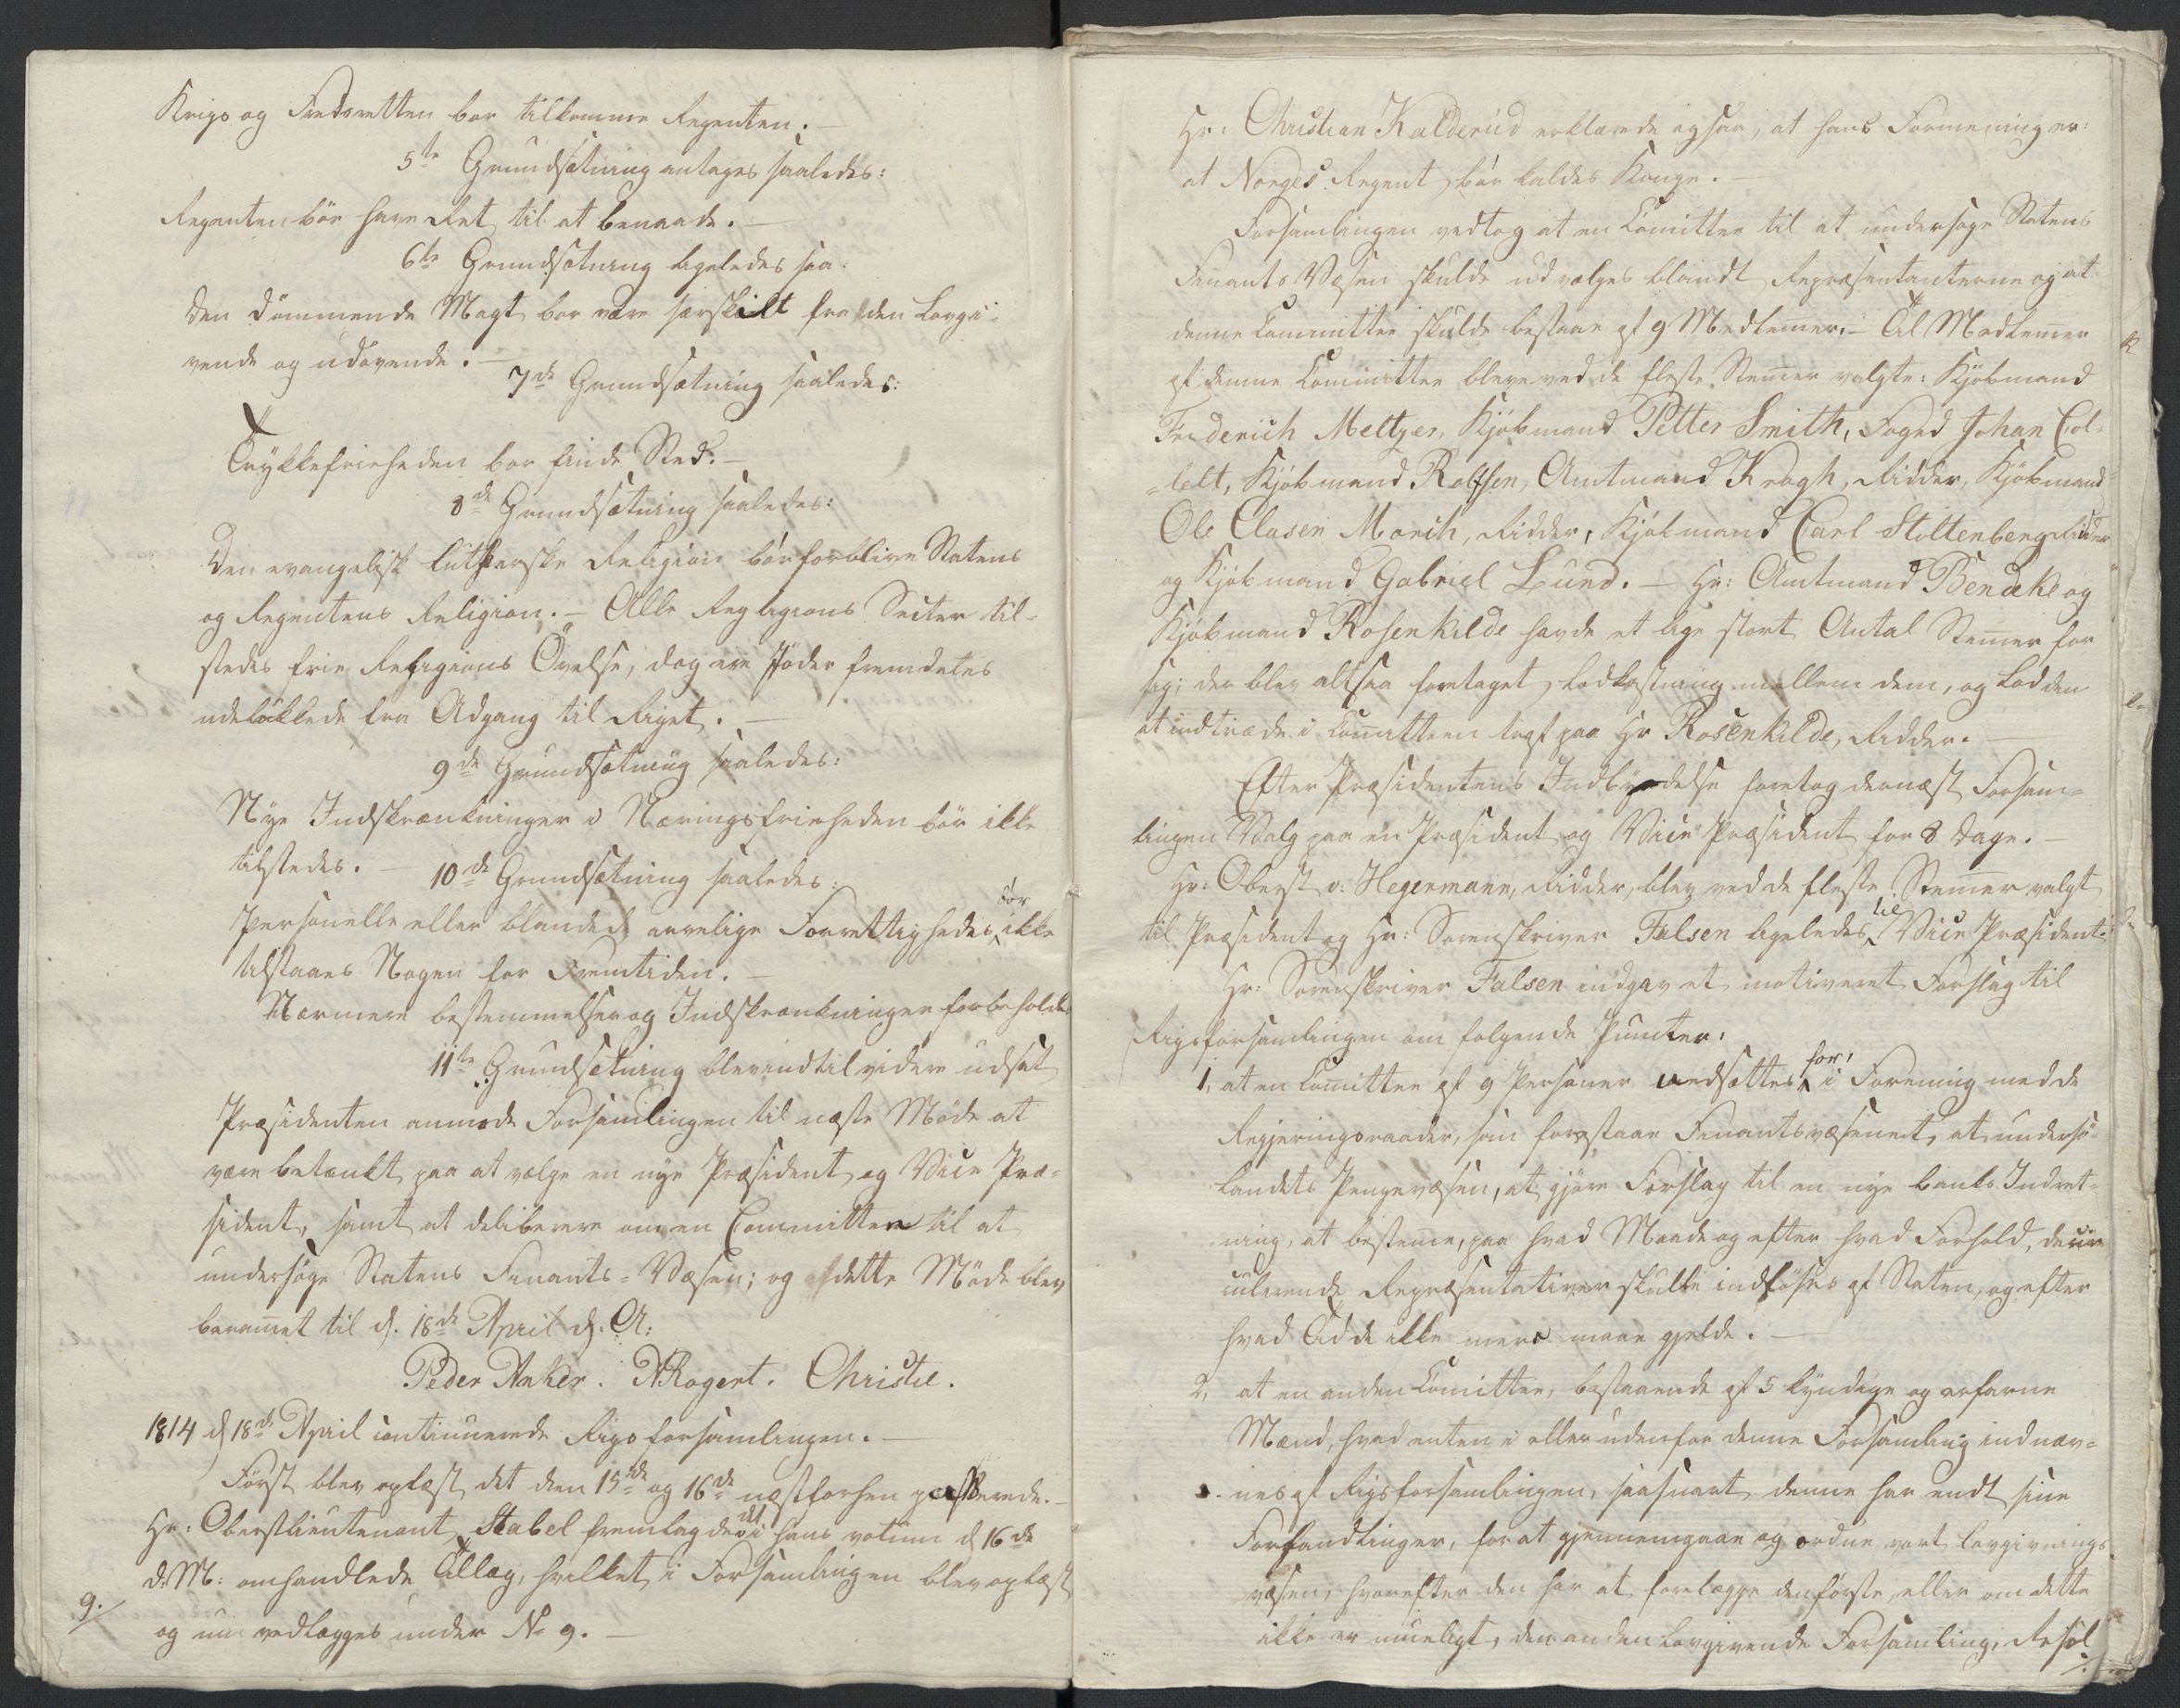 Krigs og Fredsretten bør tilkomme Regenten. —
5te Grundsætning antages saaledes:
Regenten bör have Ret til at benaade. —
6te Grundsætning ligeledes saa:
Den dömmende Magt bør være særskilt fra den Lovgi-
vende og udövende. —
7de Grundsætning saaledes:
Trykkefriheden bør finde Sted. —
8de Grundsætning saaledes:
Den evangelisk lutherske Religion bör forblive Statens
og Regentens Religion. — Alle Religions Secter til-
stedes frie Religions Övelse, dog ere Jöder fremdeles
udelukkede fra Adgang til Riget. —
9de Grundsætning saaledes:
Nye Indskrænkninger i Næringsfrieheden bör ikke
tilstedes. —
10de Grundsætning saaledes:
Personelle eller blandede arvelige Forrettigheder bör ikke
tilstaaes Nogen for Fremtiden. —
Nærmere bestemmelser og Indskrænkninger forbeholdes
11te Grundsætning blev indtil videre udsat
Præsidenten anmode Forsamlingen til næste Möde at
være betænkt paa at vælge en nye Præsident og Vice Præ-
sident, samt at deliberere om en Committee til at
undersöge Statens Finants-Væsen; og dette Möde blev
berammet til d. 18de April d. A:
Peder Anker. WRogert. Christie.
1814 d 18de April continuerede Rigsforsamlingen. —
Först blev oplæst det den 15de og 16de næstforhen passerede. —
Hr: Oberstlieutenant Stabel fremlagde det i hans votum d 16de
d. M: omhandlede Tillæg, hvilket i Forsamlingen blev oplæst
9./
og nu vedlægges under No 9. —
Hr: Christian Kalderud erklærede ogsaa, at hans Formening er:
at Norges Regent bör kaldes Konge. —
Forsamlingen vedtog at en Comittee til at undersöge Statens
Finants Væsen skulde udvælges blandt Repræsentanterne og at
denne Committee skulde bestaae af 9 Medlemer. — Til Medlemer
af denne Committee bleve ved de fleste Stemer valgte: Kjöbmand
Friderich Meltzer, Kjöbmand Petter Smith, Foged Johan Col-
-lelt, Kjöbmand Rolfsen, Amtmand Krogh, Ridder, Kjöbmand
Ole Clasen Morch, Ridder, Kjöbmand Carl Stoltenberg Ridder
og Kjöbmand Gabriel Lund. — Hr: Amtmand Bendeke og
Kjöbmand Rosenkilde havde et lige stort Antal Stemer for
sig; der blev altsaa foretaget Lodkastning mellem dem, og Lodden
at indtræde i Comitteen traf paa Hr Rosenkilde, Ridder. —
Efter Præsidentens Indbydelse foretog dernæst Forsam-
lingen Valg paa en Præsident og Vice Præsident for 8 Dage. —
Hr: Oberst v: Hegermann, Ridder, blev ved de fleste Stemer valgt
til Præsident og Hr: Sorenskriver Falsen ligeledes til Vice Præsident.
Hr: Sorenskriver Falsen indgav et motiveret Forslag til
Rigsforsamlingen om følgende Puncter:
1, at en Comittee af 9 Personer nedsættes for, i Forening med de
Regjeringsraader, som forestaae Finantsvæsenet, at undersö-
Landets Pengevæsen, at gjöre Forslag til en nye banks Indret-
ning, at bestemme, paa hvad Maade og efter hvad Forhold, de cir-
culerende Repræsentativer skulle indlöses af Staten, og efter
hvad Tid de ikke mere maae gjelde. —
2, at en anden Comittee, bestaaende af 5 kyndige og erfarne
Mænd, hvad enten i eller udenfor denne Forsamling indnæv-
nes af Rigsforsamlingen, saasnart denne har endt sine
Forhandlinger, for at gjennemgaae og ordne vort Lovgivnings-
væsen, hvorefter den har at forelægge den første, eller om dette
ikke er mueligt, den anden Lovgivende Forsamling, Resol